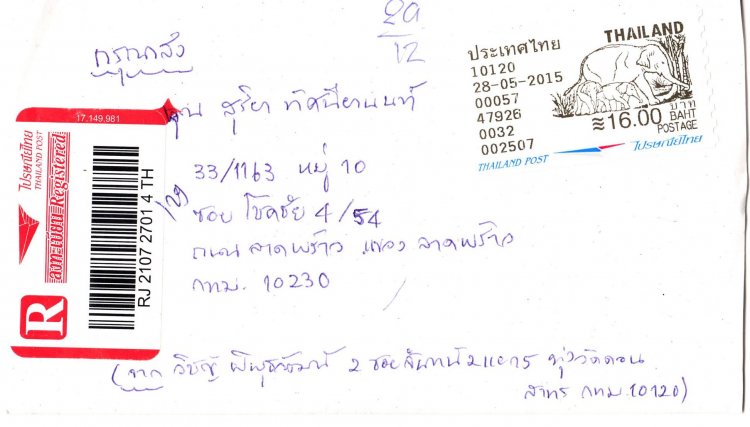 29
12
กรุณาส่ง
ประเทศไทย
10120
28-05-2015
00057
47926
0032
002507
THAILAND
≈16.00 บาท BAHT
POSTAGE
THAILAND POST
ไปรษณีย์ไทย
17.149.981
ไปรษณีย์ไทย
THAILAND POST
ลงทะเบียน Registered
R
RJ 2107 2701 4 TH
คุณ สุริยา
33/1163 หมู่ 10
ซอย โชคชัย 4/54
ถนน ลาดพร้าว แขวง ลาดพร้าว
กทม. 10230
(จาก วิชัญ 2 ซอย ทุ่งวัดดอน
สาทร กทม. 10120)